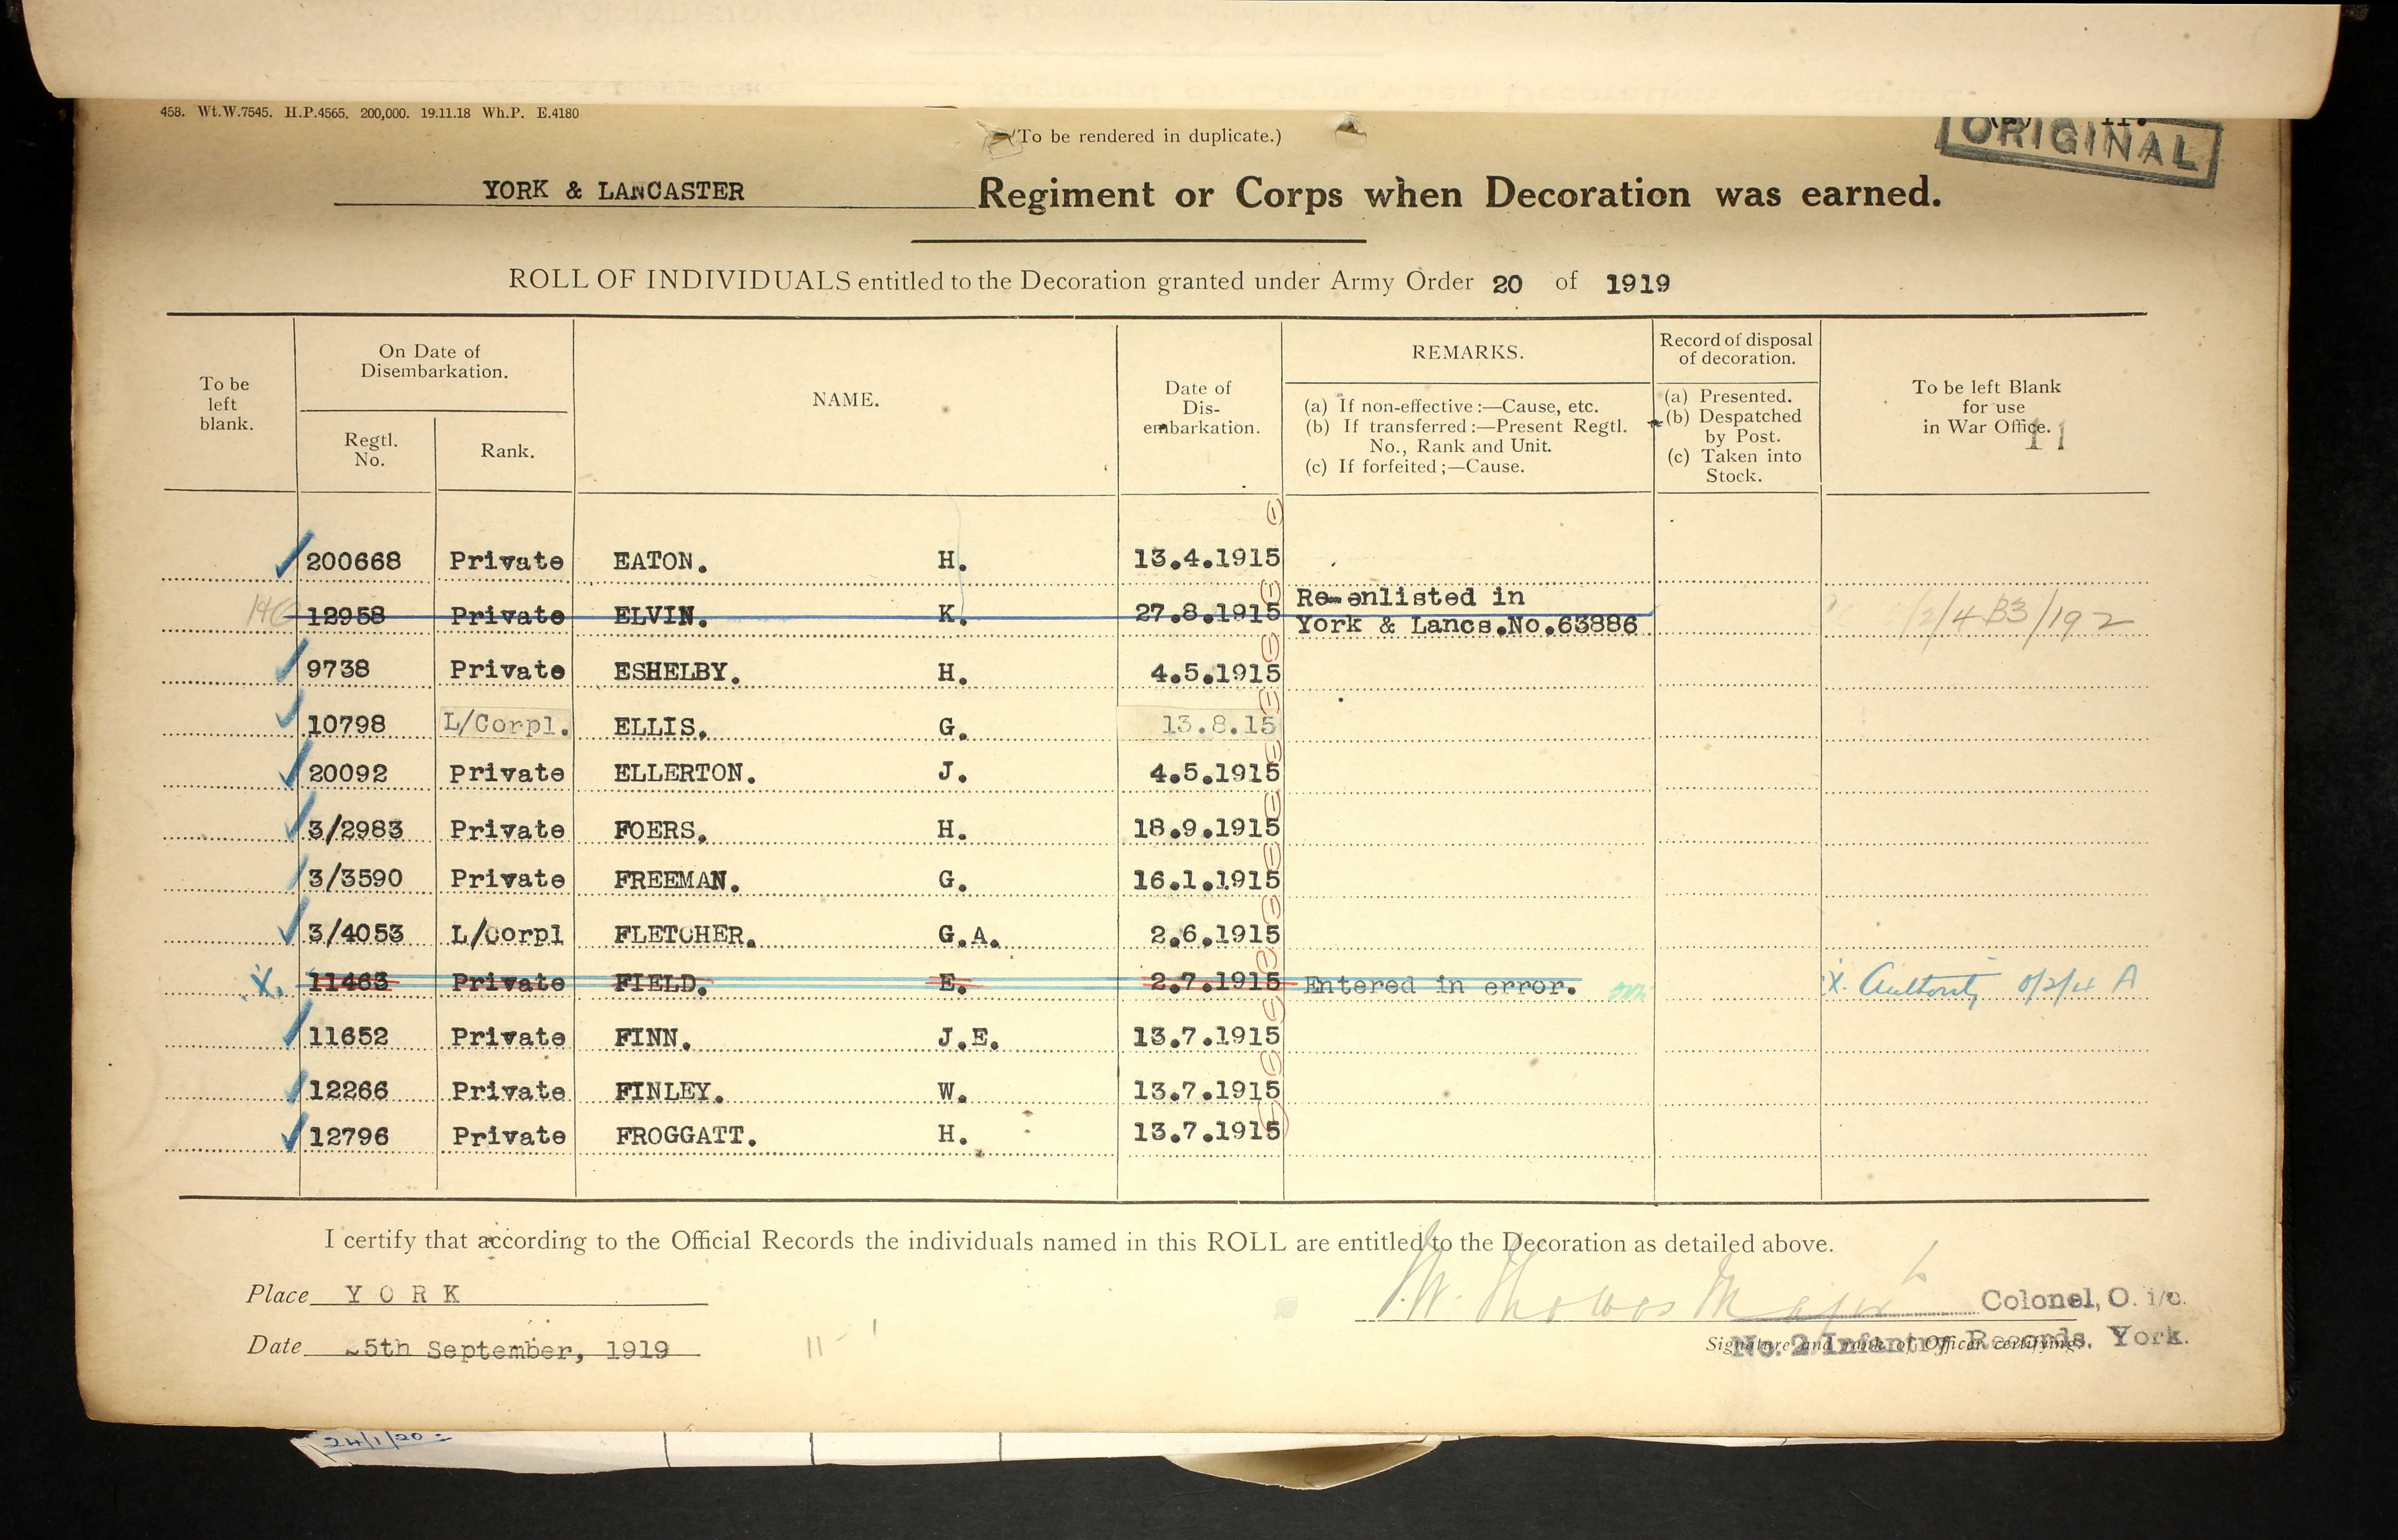 458. Wt.W.7545. H.P.4565. 200,000. 19.11.18 Wh.P. E.4180
(To be rendered in duplicate.)
ORIGINAL
YORK & LANCASTER Regiment or Corps when Decoration was earned.
ROLL OF INDIVIDUALS entitled to the Decoration granted under Army Order 20 of 1919
To be left blank.
On Date of Disembarkation.
Regtl. No.
Rank.
NAME.
Date of Dis-embarkation.
REMARKS.
(a) If non-effective :—Cause, etc.
(b) If transferred :—Present Regtl. No., Rank and Unit.
(c) If forfeited ;—Cause.
Record of disposal of decoration.
(a) Presented.
(b) Despatched by Post.
(c) Taken into Stock.
To be left Blank for use in War Office.
11
200668 Private EATON. H. 13.4.1915
12958 Private ELVIN. K. 27.8.1915 Re-enlisted in York & Lancs.No.63886 /2/4 B3/192
9738 Private ESHELBY. H. 4.5.1915
10798 L/Corpl. ELLIS. G. 13.8.15
20092 Private ELLERTON. J. 4.5.1915
3/2983 Private FOERS. H. 18.9.1915
3/3590 Private FREEMAN. G. 16.1.1915
3/4053 L/Corpl FLETCHER. G.A. 2.6.1915
X. 11463 Private FIELD. E. 2.7.1915 Entered in error. X. Authority 0/2/4 A
11652 Private FINN. J.E. 13.7.1915
12266 Private FINLEY. W. 13.7.1915
12796 Private FROGGATT. H. 13.7.1915
I certify that according to the Official Records the individuals named in this ROLL are entitled to the Decoration as detailed above.
Place YORK
Colonel, O. i/c.
Date 5th September, 1919
11-1
Signature and rank of Officer certifying.
No. 2 Infantry Records, York.
24/1/20